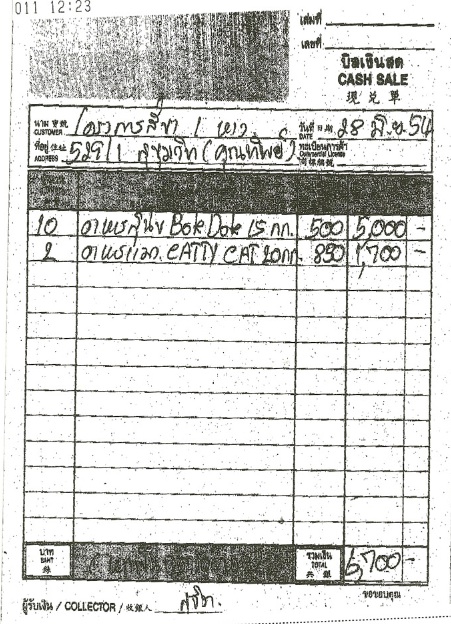 011 12:23
เล่มที่
เลขที่
บิลเงินสด
CASH SALE
現兌單
นาม
CUSTOMER โครงการสี่ขา 1
วันที่
DATE 28 มิ.ย. 54
ที่อยู่
ADDRESS 529/1 สุขุมวิท (คุณทิพย์)
ทะเบียนการค้า
Commercial License
10 อาหารสุนัข Bok Dok 15 กก. 500 5,000 -
2 อาหารแมว CATTY CAT 20กก. 850 1,700 -
บาท
BAHT
รวมเงิน
TOTAL
6,700 -
ผู้รับเงิน / COLLECTOR / 收銀人
ขอขอบคุณ